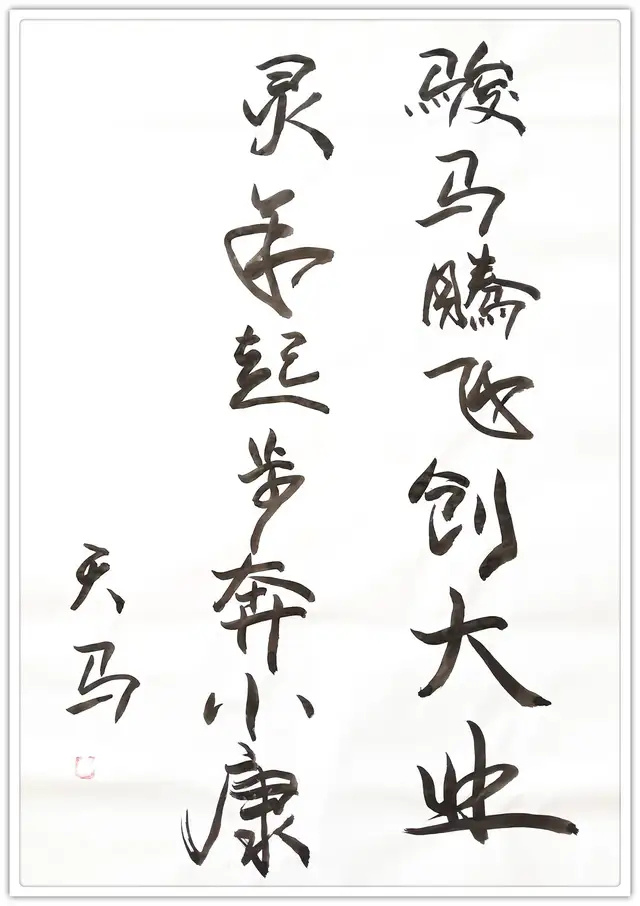 骏马騰飞创大业
灵起步奔小康
天马